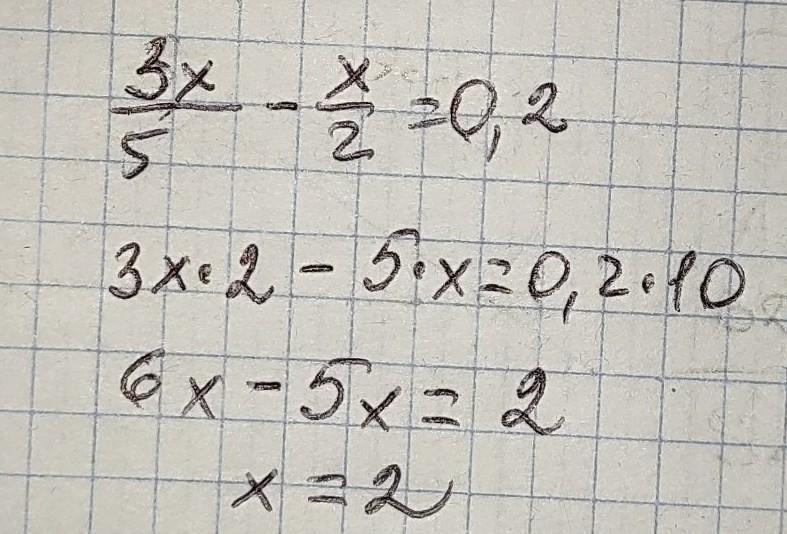 3x/5 - x/2 = 0,2
3x·2 - 5·x = 0,2·10
6x - 5x = 2
x = 2